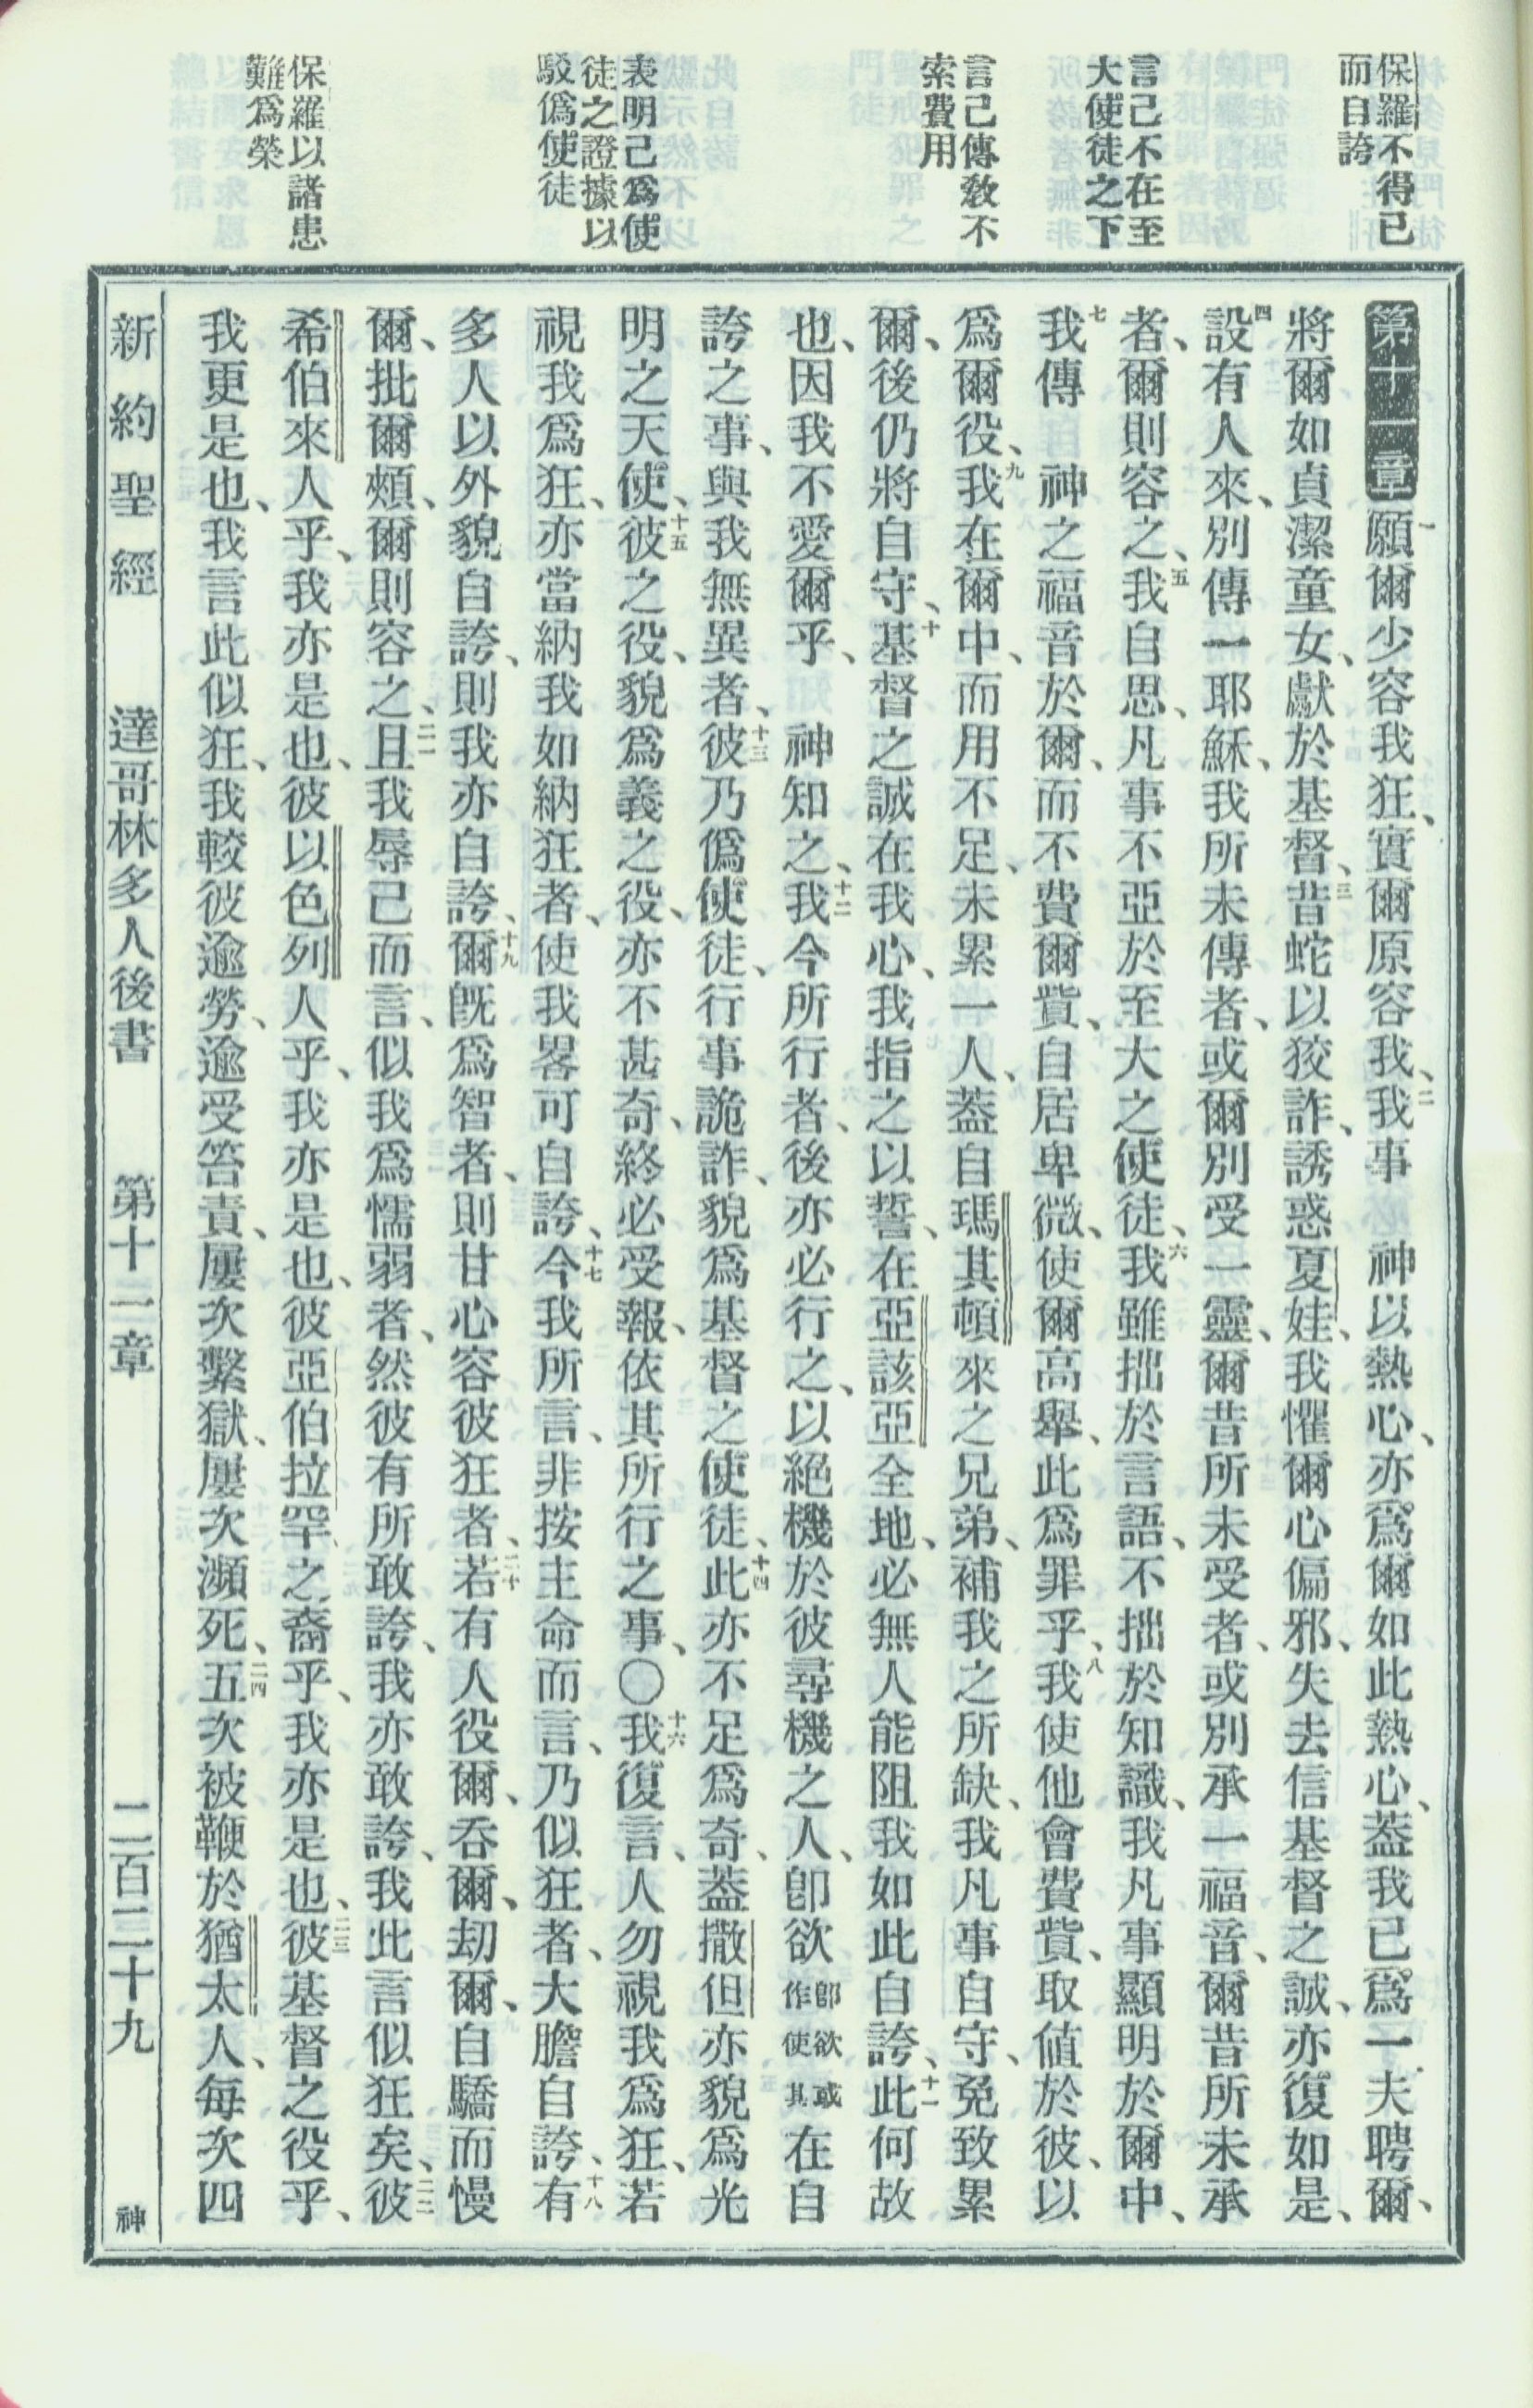 保羅不得已
而自誇
言己不在至
大使徒之下
言己傳敎不
索費用
表明己爲使
徒之證據以
駁僞使徒
保羅以諸患
難爲榮
第十一章 一願爾少容我狂、實爾原容我、二我事 神以熱心、亦爲爾如此熱心、蓋我已爲一夫聘爾、
將爾如貞潔童女、獻於基督、三昔蛇以狡詐、誘惑夏娃、我懼爾心偏邪、失去信基督之誠、亦復如是、
四設有人來、別傳一耶穌、我所未傳者、或爾別受一靈、爾昔所未受者、或別承一福音、爾昔所未承
者、爾則容之、五我自思、凡事不亞於至大之使徒、六我雖拙於言語、不拙於知識、我凡事顯明於爾中、
七我傳 神之福音於爾、而不費爾貲、自居卑微、使爾高舉、此爲罪乎、八我使他會費貲、取値於彼、以
爲爾役、九我在爾中、而用不足、未累一人、蓋自瑪其頓來之兄弟、補我之所缺、我凡事自守、免致累
爾、後仍將自守、十基督之誠在我心、我指之以誓、在亞該亞全地、必無人能阻我如此自誇、十一此何故
也、因我不愛爾乎、 神知之、十二我今所行者、後亦必行之、以絕機於彼尋機之人、卽欲卽欲或作使其在自
誇之事、與我無異者、十三彼乃僞使徒、行事詭詐、貌爲基督之使徒、十四此亦不足爲奇、蓋撒但亦貌爲光
明之天使、十五彼之役、貌爲義之役、亦不甚奇、終必受報、依其所行之事、〇十六我復言、人勿視我爲狂、若
視我爲狂、亦當納我如納狂者、使我畧可自誇、十七今我所言、非按主命而言、乃似狂者、大膽自誇、十八有
多人以外貌自誇、則我亦自誇、十九爾旣爲智者、則甘心容彼狂者、二十若有人役爾、吞爾、刧爾、自驕而慢
爾、批爾頰、爾則容之、二一且我辱己而言、似我爲懦弱者、然彼有所敢誇、我亦敢誇、我此言似狂矣、二二彼
希伯來人乎、我亦是也、彼以色列人乎、我亦是也、彼亞伯拉罕之裔乎、我亦是也、二三彼基督之役乎、
我更是也、我言此似狂、我較彼逾勞、逾受笞責、屢次繫獄、屢次瀕死、二四五次被鞭於猶太人、每次四
新約聖經 達哥林多人後書 第十一章 二百三十九 神